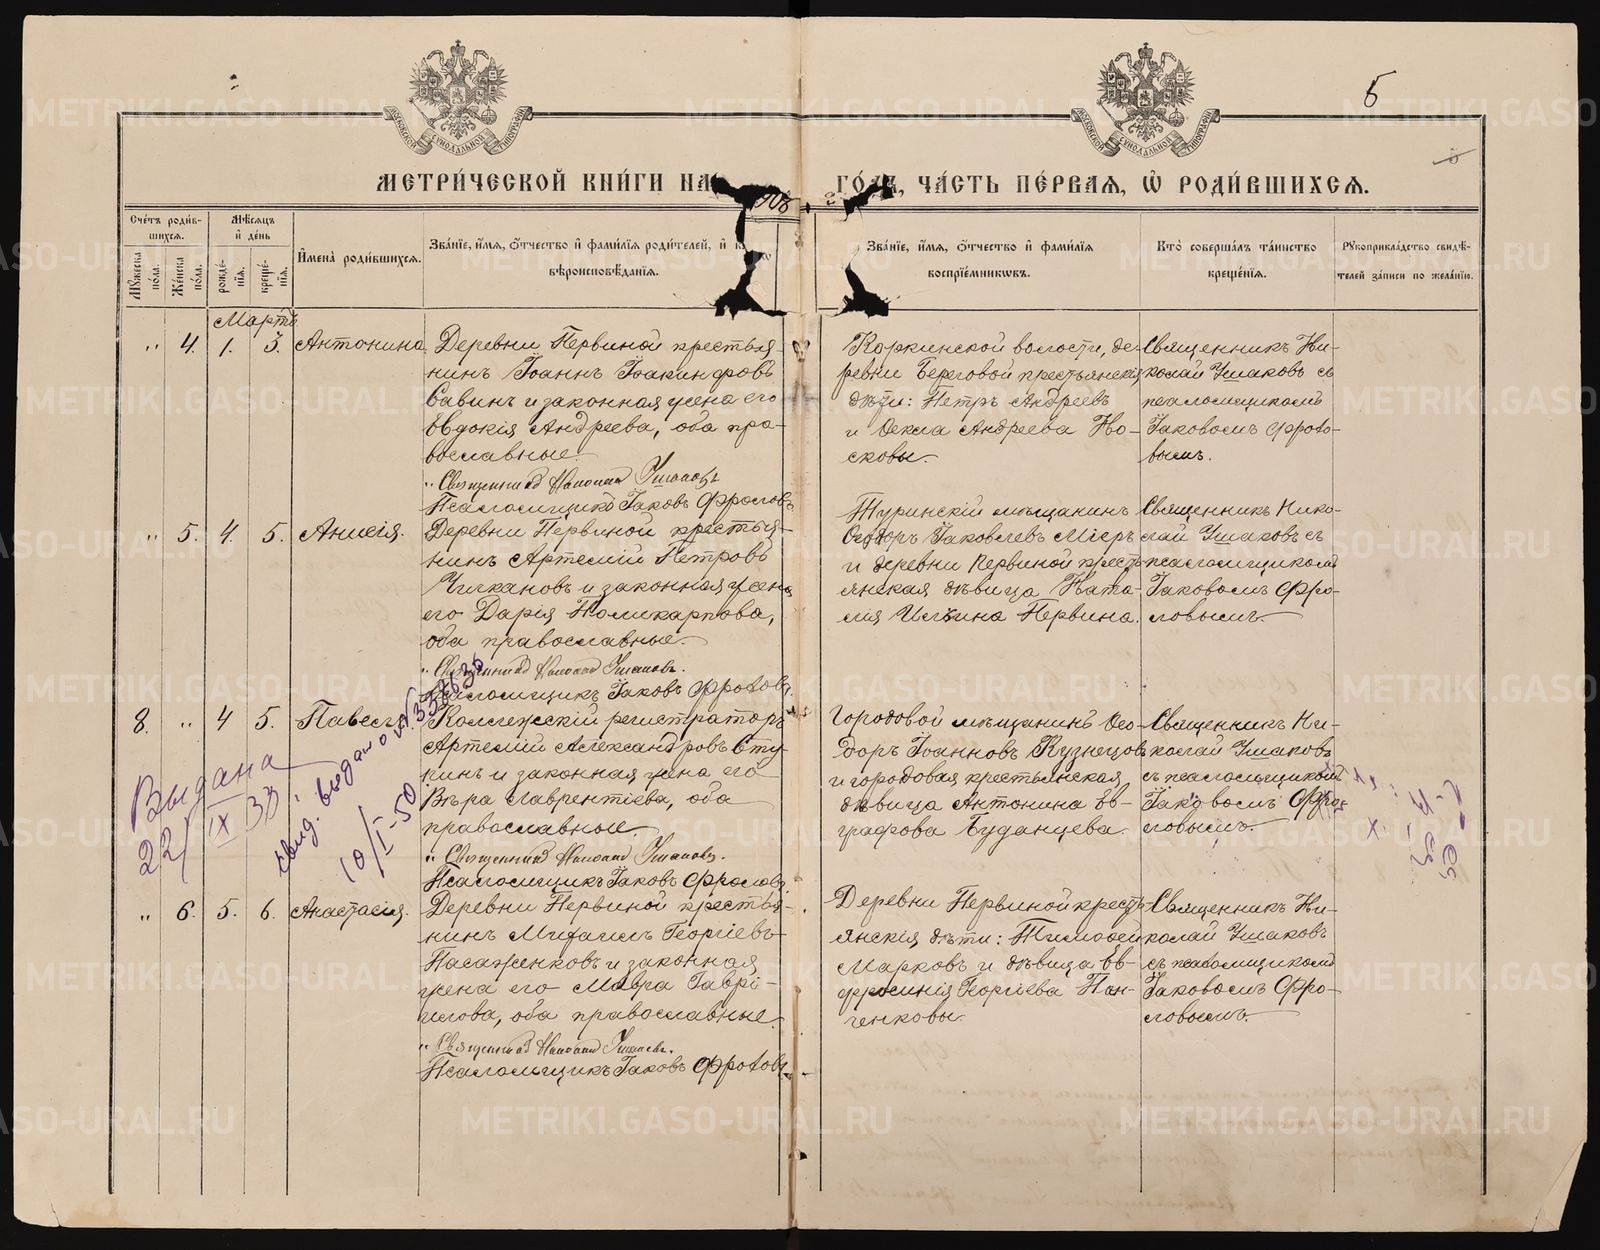 5
МЕТРИ́ЧЕСКОЙ КНИ́ГИ НА 908 ГО́ДЪ, ЧА́СТЬ ПЕ́РВАЯ, Ѡ҆ РОДИ́ВШИХСЯ.
Сче́тъ роди́в-
шихся.
Мѣ́сяцъ
и҆ де́нь
Му́жеска
по́ла.
Же́нска
по́ла.
рожде́-
нїя.
креще́-
нїя.
И҆мена̀ роди́вшихся.
Зва́нїе, и҆́мя, ѻ҆́тчество и҆ фами́лїя роди́телей, и҆ к
вѣроисповѣ́данїя.
Зва́нїе, и҆́мя, ѻ҆́тчество и҆ фами́лїя
воспрїе́мниковъ.
Кто̀ соверша́лъ та́инство
креще́нїя.
Рꙋкоприкла́дство свидѣ́-
телей за́писи по жела́нїю.
Мартъ
„ 4. 1. 3. Антонина
Деревни Первиной крестья-
нинъ Іоаннъ Іоакинфовъ
Савинъ и законная жена его
Евдокія Андреева, оба пра-
вославные.
„ Священникъ Николай Ушаковъ
Псаломщикъ Іаковъ Фроловъ.
Коркинской волости, де-
ревни Береговой крестьянскія
дѣти: Петръ Андреевъ
и Ѳекла Андреева Но-
сковы.
Священникъ Ни-
колай Ушаковъ съ
псаломщикомъ
Іаковомъ Фроло-
вымъ.
„ 5. 4. 5. Анисія.
Деревни Первиной крестья-
нинъ Артемій Петровъ
Чилкановъ и законная жена
его Дарія Поликарпова,
оба православные.
„ Священникъ Николай Ушаковъ.
Псаломщикъ Іаковъ Фроловъ.
Туринскій мѣщанинъ
Ѳеодоръ Іаковлевъ
и деревни Первиной кресть-
янская дѣвица Ната-
лія Ильина Первина.
Священникъ Нико-
лай Ушаковъ съ
псаломщикомъ
Іаковомъ Фро-
ловымъ.
8. „ 4 5. Павелъ
Коллежскій регистраторъ
Артемій Александровъ Сту-
кинъ и законная жена его
Вѣра Лаврентіева, оба
православные.
„ Священникъ Николай Ушаковъ.
Псаломщикъ Іаковъ Фроловъ.
Городовой мѣщанинъ Ѳео-
доръ Іоанновъ Кузнецовъ
и городовая крестьянская
дѣвица Антонина Ев-
графова Буданцева.
Священникъ Ни-
колай Ушаковъ
съ псаломщикомъ
Іаковомъ Фро-
ловымъ.
Выдана
22/IX 33
свид. выдано
10/I-50
„ 6. 5. 6. Анастасія.
Деревни Первиной крестья-
нинъ Михаилъ Георгіевъ
Насаженковъ и законная
жена его Мавра Гаврі-
илова, оба православные.
„ Священникъ Николай Ушаковъ.
Псаломщикъ Іаковъ Фроловъ.
Деревни Первиной кресть-
янскія дѣти: Тимоѳей
Марковъ и дѣвица Ев-
фросинія Георгіева Пан-
ченковы.
Священникъ Ни-
колай Ушаковъ
съ псаломщикомъ
Іаковомъ Фро-
ловымъ.
METRIKI.GASO-URAL.RU